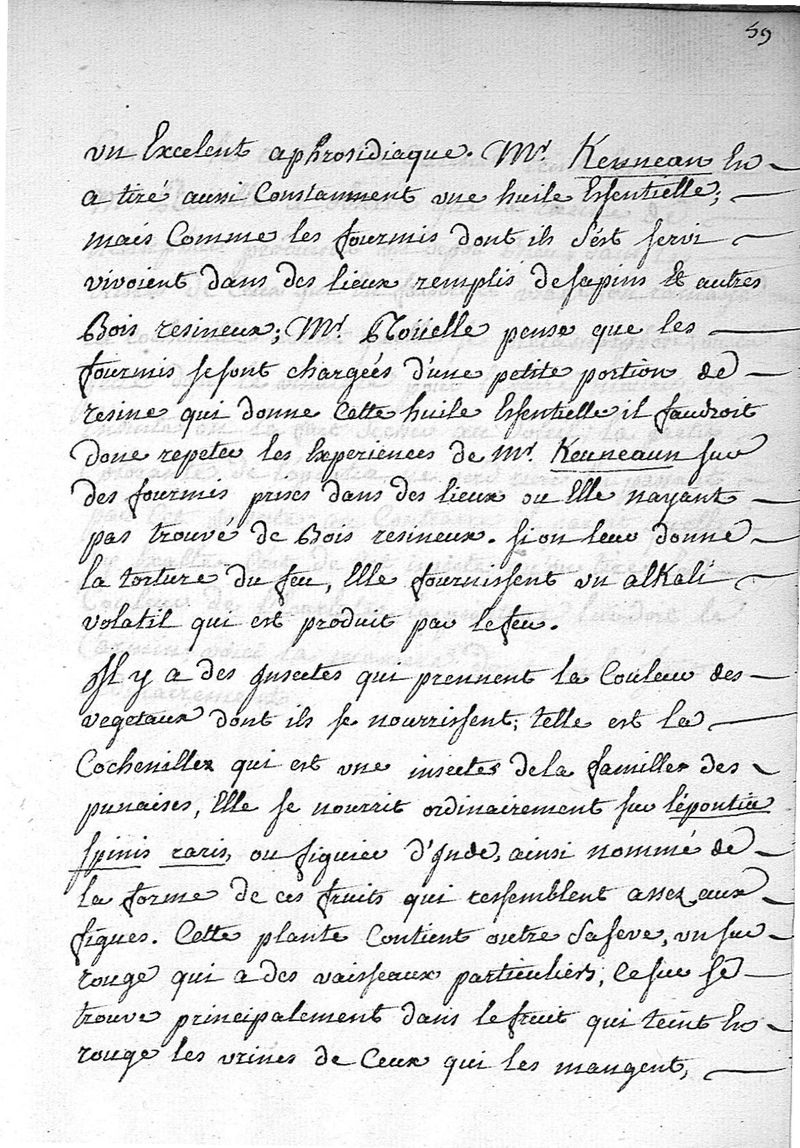 59
un Excelent aphrosidiaque. Mr. Keuneau En
a tiré aussi Constamment une huile Essentielle;
mais Comme les fourmis dont ils s'est servi
vivoient dans des lieux remplis de sapins Et autres
Bois resineux; Mr. Roüelle pense que les
fourmis se sont chargées d'une petite portion de
resine qui donne Cette huile Essentielle il faudroit
donc repeter les Experiences de Mr. Keuneaun sur
des fourmis prises dans des lieux ou Elle nayant
pas trouvé de Bois resineux. si on leur donne
la torture du feu, Elle fournissent un alkali
volatil qui est produit par le feu.
Il y a des Insectes qui prennent la Couleur des
vegetaux dont ils se nourrissent; telle est la
Cochenille qui est une insecte de la famille des
punaises, Elle se nourrit ordinairement sur l'épontia
spinis raris, ou figuier d'Inde, ainsi nommé de
la forme de ces fruits qui ressemblent assez aux
figues. Cette plante Contient outre sa seve, un suc
rouge qui a des vaisseaux particuliers, Ce suc se
trouve principalement dans le fruit qui teint En
rouge les urines de Ceux qui les mangent,